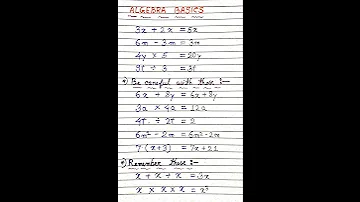 ALGEBRA BASICS
3x + 2x = 5x
6m - 3m = 3m
4y × 5 = 20y
9t ÷ 3 = 3t
Be careful with these :-
6x + 3y = 6x + 3y
3a × 4a = 12a
4t ÷ 2t = 2
6m² - 2m = 6m² - 2m
7 (x + 3) = 7x + 21
Remember these :-
x + x + x = 3x
x × x × x = x³